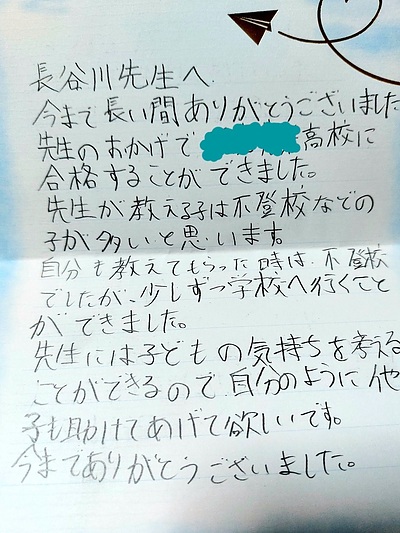 長谷川先生へ
今まで長い間ありがとうございました
先生のおかげで高校に
合格することができました。
先生が教える子は不登校などの
子が多いと思います。
自分も教えてもらった時は、不登校
でしたが、少しずつ学校へ行くこと
ができました。
先生には子どもの気持ちを考える
ことができるので、自分のように他
子も助けてあげて欲しいです。
今までありがとうございました。